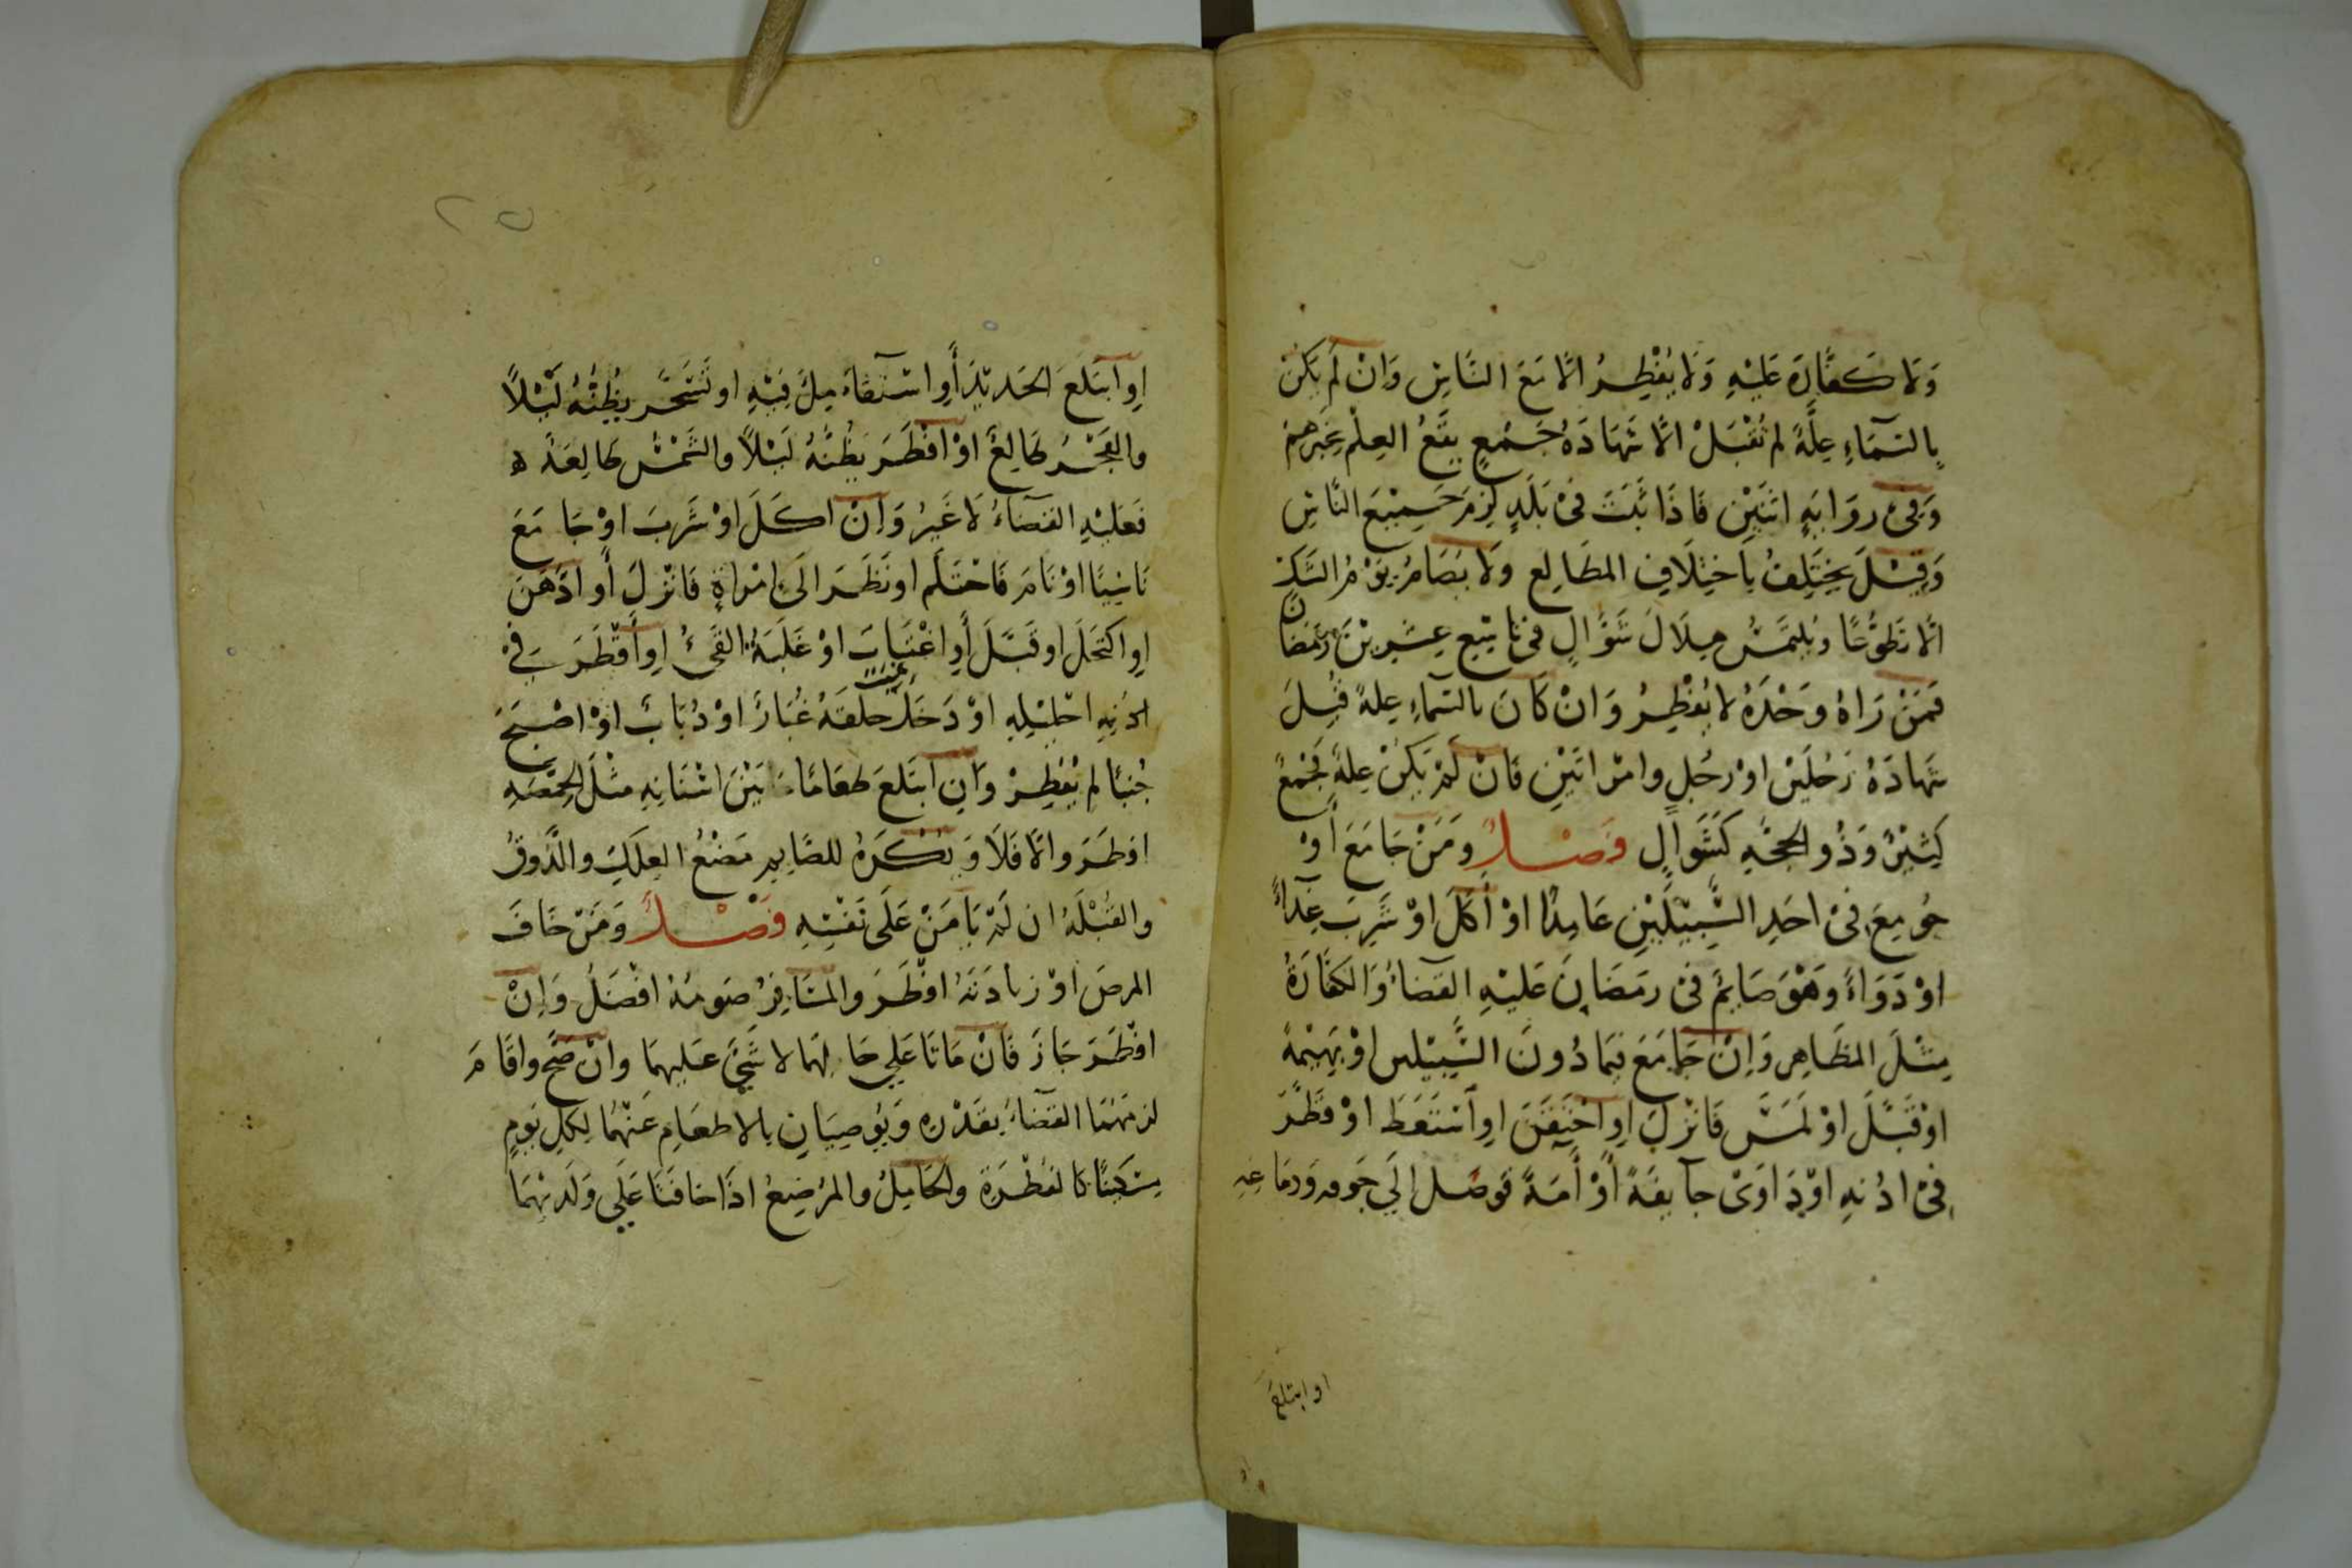 وَلَا كَفَّارَةَ عَلَيْهِ وَلَا يُفْطِرُ الَّا مَعَ النَّاسِ وَانْ لَمْ يَكُنْ
بِالسَّمَآءِ عِلَّةٌ لم تُقْبَلْ الَّا شَهَادَةُ جَمْعٍ يَقَعُ العِلْمُ بخبرهم
وَفِى رِوَايَةٍ اثنَيْنِ فَاذَا ثَبَتَ فىْ بَلَدٍ لَزِمَ جَمِيْعَ النَّاسِ
وَقِيْلَ يَخْتَلِفُ بِاخِتِلَافِ المطَالِع وَلَا يُصَامُ يَوْمُ الشَّكِّ
الَّا تَطَوُّعًا وَيُلتَمَسُ هِلَالَ شَوَّالٍ فى تَاسِع عِشْرِيْنَ رَمَضَان
فَمَنْ رَاهُ وَحْدَهُ لا يُفْطِرُ وَانْ كَانَ بالسَّمآءِ عِلةٌ قُبِلَ
شَهادَةُ رَجُلَيْنِ اوْ رَجُلٍ وامْرَاتَيْنِ فَانْ لَمْ يَكُنْ عِلةٌ فَجَمْعٌ
كَثِيْرٌ وَذُو الحِجَّةِ كَشَوَّالٍ فَصْلٌ وَمَنْ جَامَعَ أوْ
جُومِعَ فِىْ احَدِ السَّبِيْلَيْنِ عَامِدًا اوْ أَكَلَ اوْ شَرِبَ غِذَآءً
اوْ دَوَاءً وَهْوَ صَايِمٌ فىْ رمَضَانَ عَليْهِ القَضَاءُ وَالكَفَّارَةُ
مِثْلَ المظَاهِر وَاِنْ جَامَعَ فِيمَا دُونَ السَّبِيْلين اوْ بَهِيْمَةً
اوْ قَبَّلَ اوْ لَمَسَ فَانْزَلَ اوِ احْتَقَنَ اوِ اسْتَعَطَ اوْ قَطَّرَ
فِىْ اذُنهِ اوْ دَاوَىْ جآيِفَةً أوْ أمَةً فَوصَل الَى جَوفه وَدمَاغِهِ
او ابتلع
٢٥
اوِ ابْتَلعَ الحَدِيْدَ أَوِ اسْتَقَاءَ مِلَْ فِيْهِ او تَسَحَّر يظُنُّهُ لَيْلاً
والفَجْرُ طَالِعٌ اوْ افْطَرَ يَظُنُّهُ لَيْلاً والشَّمْسُ طَالِعَةٌ
فَعَليْهِ القضَآءُ لَا غَيرُ وَاِنْ اكَلَ اوْ شَرِبَ اوْ جَامَعَ
نَاسِيًا اوْ نَامَ فَاحْتَلَم او نَظَرَ الَىٰ امْرَاةٍ فَانْزَلَ أَوِ ادَّهَنَ
اوِ اكتَحَلَ او قَبَّلَ أَوِ اغْتَابَ اوْ غَلَبَهُ القَىْءُ اوِ أَقْطَرَ فىْ
اذنِهِ احْلِيْلِهِ اوْ دَخَلَ حلقَهُ غُبَارٌ اوْ ذُبَابٌ اوْ اصْبَحَ
جُنبًا لم يُفْطِرْ وَانِ ابتَلَعَ طعَامًا بَيْنَ اسْنَانِهِ مثْلَ الحِمَّصَةِ
افطَرَ والَّا فَلَا وَيُكْرَهُ للصَّايِمِ مَضْغُ العِلَكِ والذَّوقُ
والقُبْلَةُ ان لَمْ يَأمَنْ عَلَى نَفْسِهِ فَصْلٌ وَمَنْ خَافَ
المرضَ اوْ زيادَتَهُ افْطَرَ والمسَافِرُ صَومُهُ افْضَلُ وَاِنْ
افْطَرَ جَازَ فَانْ مَاتَا عَلى حَالِهما لا شَىْءَ عَليهِمَا وانْ صَحَّ واقَامَ
لزمَهُمَا القضَآءُ بِقَدْرِهِ وَيُوصِيَانِ بالاطعَامِ عَنْهُمَا لِكلِّ يَومٍ
مِسْكِيْنًا كالفطْرَةِ والحَامِلُ والمرْضِعُ اذَا خافَتَا عَلَى وَلَدَيْهِمَا